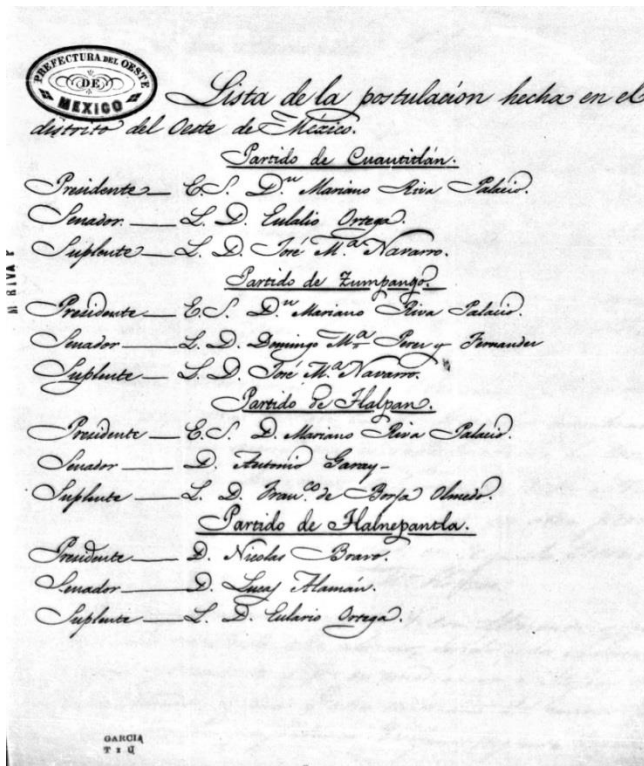 PREFECTURA DEL OESTE
DE
MEXICO
Lista de la postulacion hecha en el
distrito del Oeste de México.
Partido de Cuautitlan.
Presidente — E. S. D.n Mariano Riva Palacio.
Senador — L. D. Eulalio Ortega.
Suplente — L. D. José M.a Navarro.
Partido de Zumpango.
Presidente — E. S. D.n Mariano Riva Palacio.
Senador — L. D. Domingo M.a Perez y Fernandez
Suplente — L. D. José M.a Navarro.
Partido de Tlalpan.
Presidente — E. S. D. Mariano Riva Palacio.
Senador — D. Antonio Garay-
Suplente — L. D. Fran.co de Borja Olmedo.
Partido de Tlalnepantla.
Presidente — D. Nicolas Bravo.
Senador — D. Lucas Alamán.
Suplente — L. D. Eulario Ortega.
M RIVA P
GARCIA